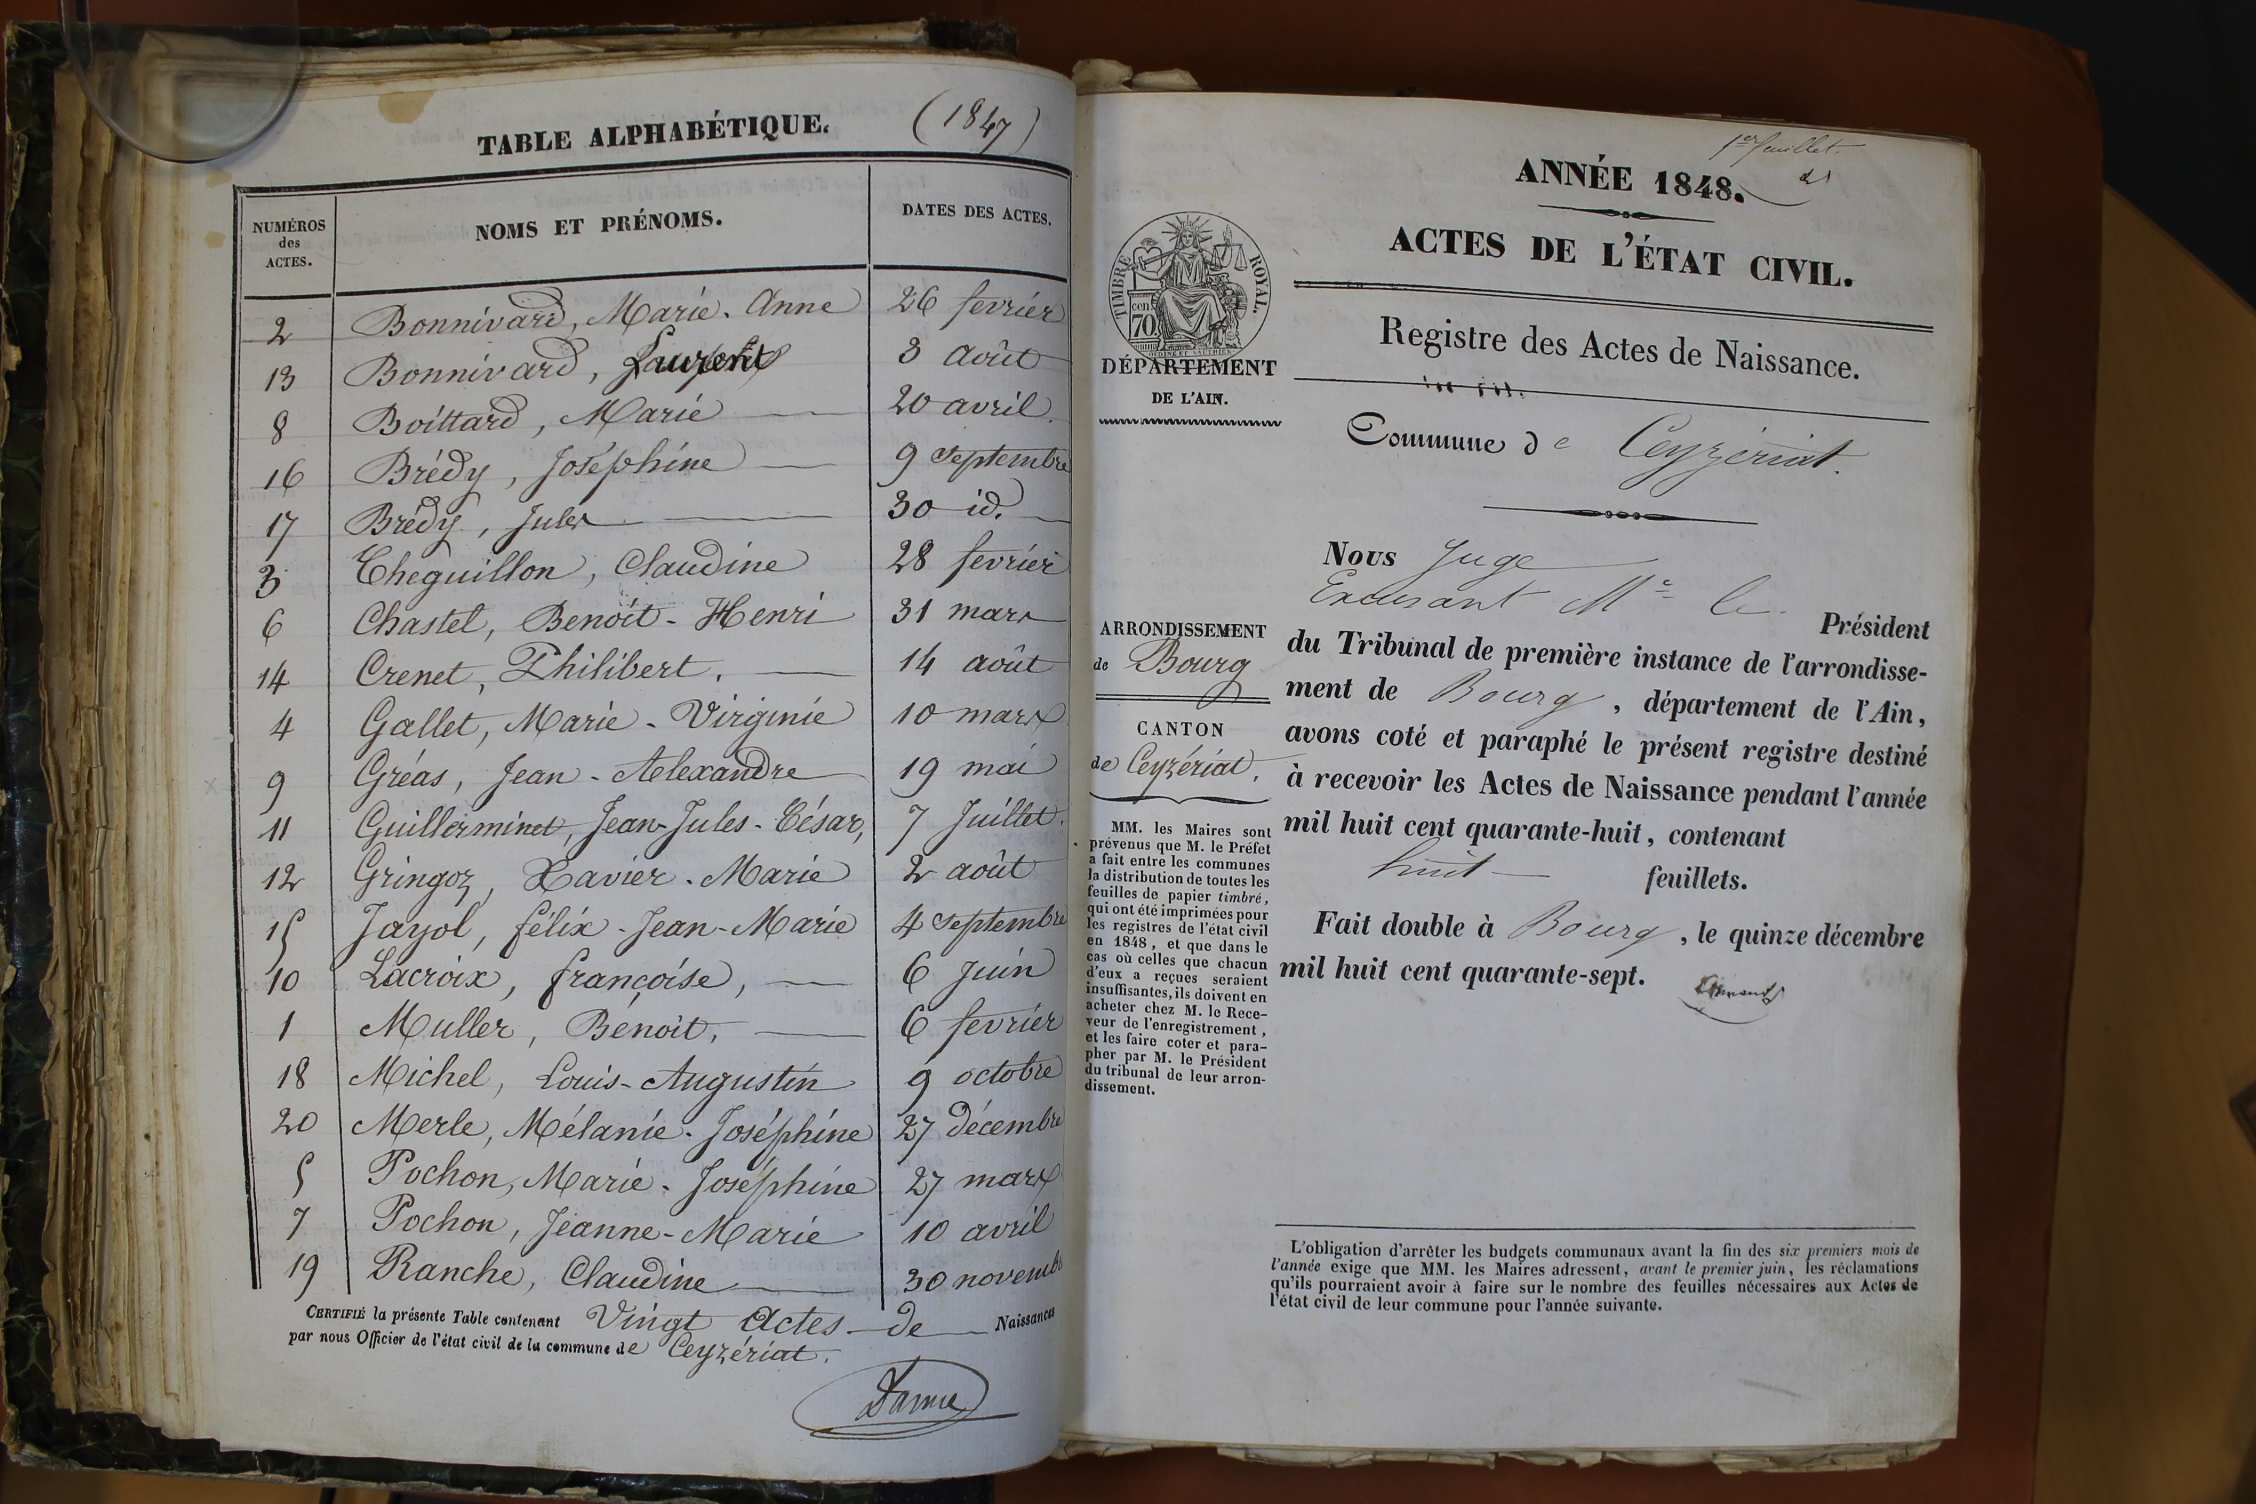 TABLE ALPHABÉTIQUE. (1847)
NUMÉROS des ACTES. NOMS ET PRÉNOMS. DATES DES ACTES.
2 Bonnivard, Marie-Anne 26 fevrier
13 Bonnivard, Laurent 3 août
8 Boittard, Marie 20 avril.
16 Brédy, Joséphine 9 septembre
17 Brédy, Jules 30 id.
3 Cheguillon, Claudine 28 fevrier
6 Chastel, Benoit-Henri 31 mars
14 Crenet, Philibert. 14 août
4 Gallet, Marie-Virginie 10 mars
9 Gréas, Jean-Alexandre 19 mai
11 Guillerminet, Jean-Jules-César, 7 Juillet.
12 Gringoz, Xavier-Marie 2 août
15 Jayol, félix-Jean-Marie 4 septembre
10 Lacroix, françoise, 6 Juin
1 Muller, Benoit, 6 fevrier
18 Michel, Louis-Augustin 9 octobre
20 Merle, Mélanie-Joséphine 27 décembre
5 Pochon, Marie-Joséphine 27 mars
7 Pochon, Jeanne-Marie 10 avril
19 Ranche, Claudine 30 novemb
CERTIFIÉ la présente Table contenant Vingt Actes de Naissances
par nous Officier de l'état civil de la commune de Ceyzériat.
1er feuillet.
ANNÉE 1848.
ACTES DE L'ÉTAT CIVIL.
Registre des Actes de Naissance.
TIMBRE ROYAL.
70 cen
DÉPARTEMENT
DE L'AIN.
Commune de Ceyzériat.
ARRONDISSEMENT
de Bourg
CANTON
de Ceyzériat.
MM. les Maires sont
prévenus que M. le Préfet
a fait entre les communes
la distribution de toutes les
feuilles de papier timbré,
qui ont été imprimées pour
les registres de l'état civil
en 1848, et que dans le
cas où celles que chacun
d'eux a reçues seraient
insuffisantes, ils doivent en
acheter chez M. le Rece-
veur de l'enregistrement,
et les faire coter et para-
pher par M. le Président
du tribunal de leur arron-
dissement.
Nous Juge
Excusant Mr le Président
du Tribunal de première instance de l'arrondisse-
ment de Bourg, département de l'Ain,
avons coté et paraphé le présent registre destiné
à recevoir les Actes de Naissance pendant l'année
mil huit cent quarante-huit, contenant
huit feuillets.
Fait double à Bourg, le quinze décembre
mil huit cent quarante-sept.
L'obligation d'arrêter les budgets communaux avant la fin des six premiers mois de
l'année exige que MM. les Maires adressent, avant le premier juin, les réclamations
qu'ils pourraient avoir à faire sur le nombre des feuilles nécessaires aux Actes de
l'état civil de leur commune pour l'année suivante.